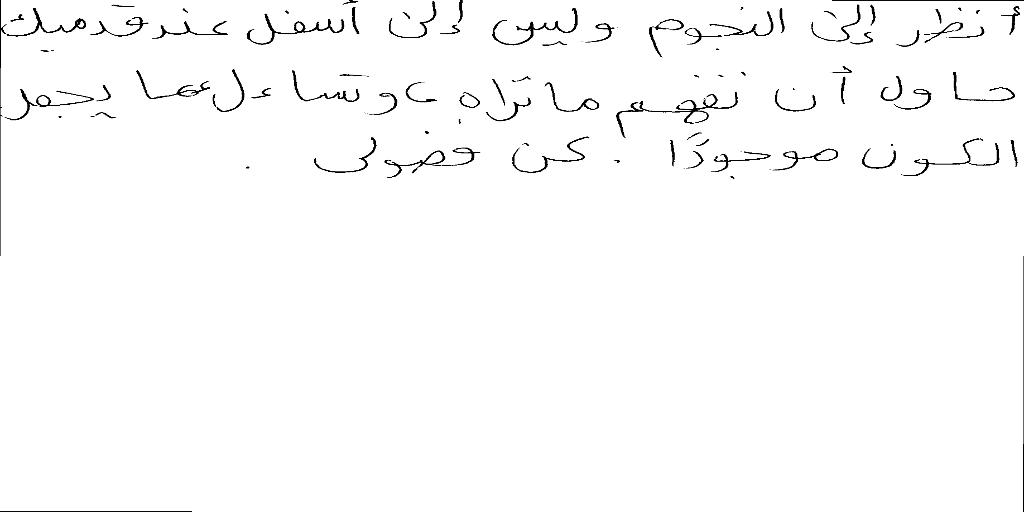 أنظر إلى النجوم وليس إلى أسفل عند قدميك
حاول أن تفهم ما تراه، وتساءل عما يجعل
الكون موجودًا. كن فضولي.